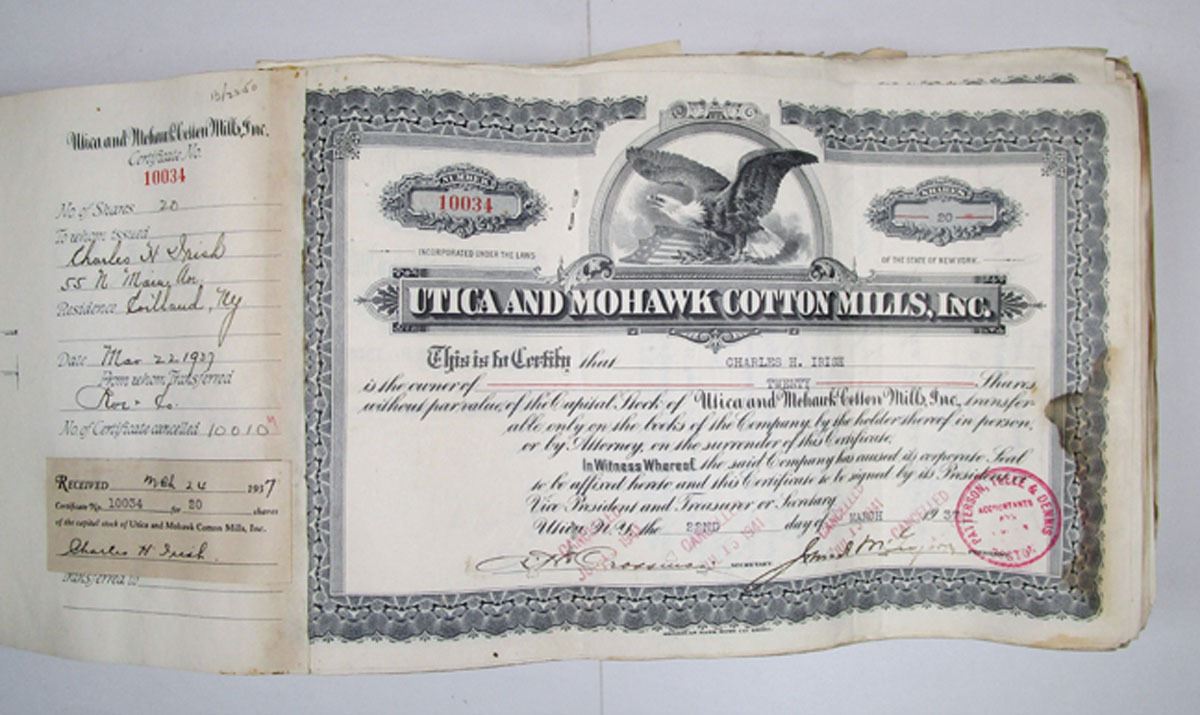 Utica and Mohawk Cotton Mills, Inc.
Certificate No.
10034
No. of Shares 20
To whom issued
Charles H Irish
55 N Main
Residence Cortland, Ny
Date Mar 22 1937
From whom Transferred
No. of Certificate cancelled 10010
RECEIVED Mch 24 1937
Certificate No. 10034 for 20 shares
of the capital stock of Utica and Mohawk Cotton Mills, Inc.
Charles H Irish.
Transferred to
NUMBER
10034
SHARES
20
INCORPORATED UNDER THE LAWS
OF THE STATE OF NEW YORK.
UTICA AND MOHAWK COTTON MILLS, INC.
This is to Certify that CHARLES H. IRISH
is the owner of TWENTY Shares
without par value, of the Capital Stock of Utica and Mohawk Cotton Mills, Inc., transfer-
able only on the books of the Company, by the holder thereof in person,
or by Attorney, on the surrender of this Certificate.
In Witness Whereof, the said Company has caused its corporate Seal
to be affixed hereto and this Certificate to be signed by its President
Vice President and Treasurer or Secretary
Utica, N.Y. the 22ND day of MARCH 1937
CANCELLED
CANCELLED
CANCELLED
CANCELLED
SECRETARY
PATTERSON, TEELE & DENNIS
ACCOUNTANTS
AND